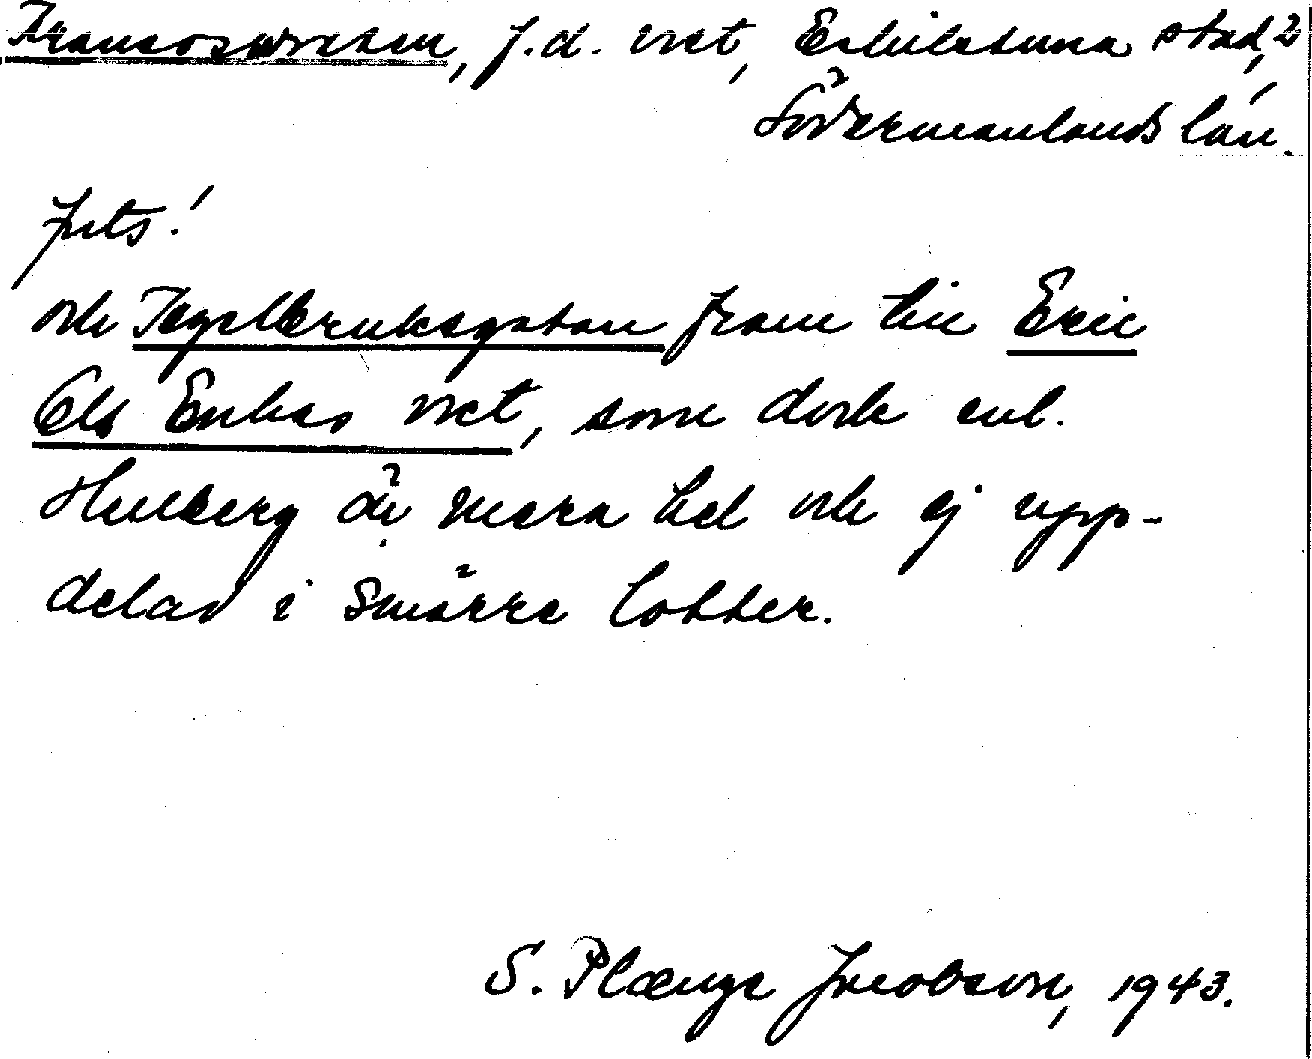 Francoswreten, f.d. vret, Eskilstuna stad, 2
Södermanlands län.
forts.!
och Tegelbruksgatan fram till Eric
Ols Enkas vret, som dock enl.
Hellberg är mera hel och ej upp-
delad i smärre lotter.
S. Plænge Jacobson, 1943.